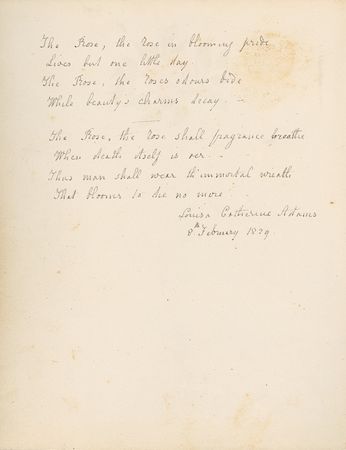 The Rose, the rose in blooming pride
Lives but one little day.
The Rose, the roses odours bide
While beauty's charms decay. —
The Rose, the rose shall fragrance breathe
When death itself is oer. -
Thus man shall wear th'immortal wreath
That blooms to die no more
Louisa Catherine Adams
8th Febuary 1839.